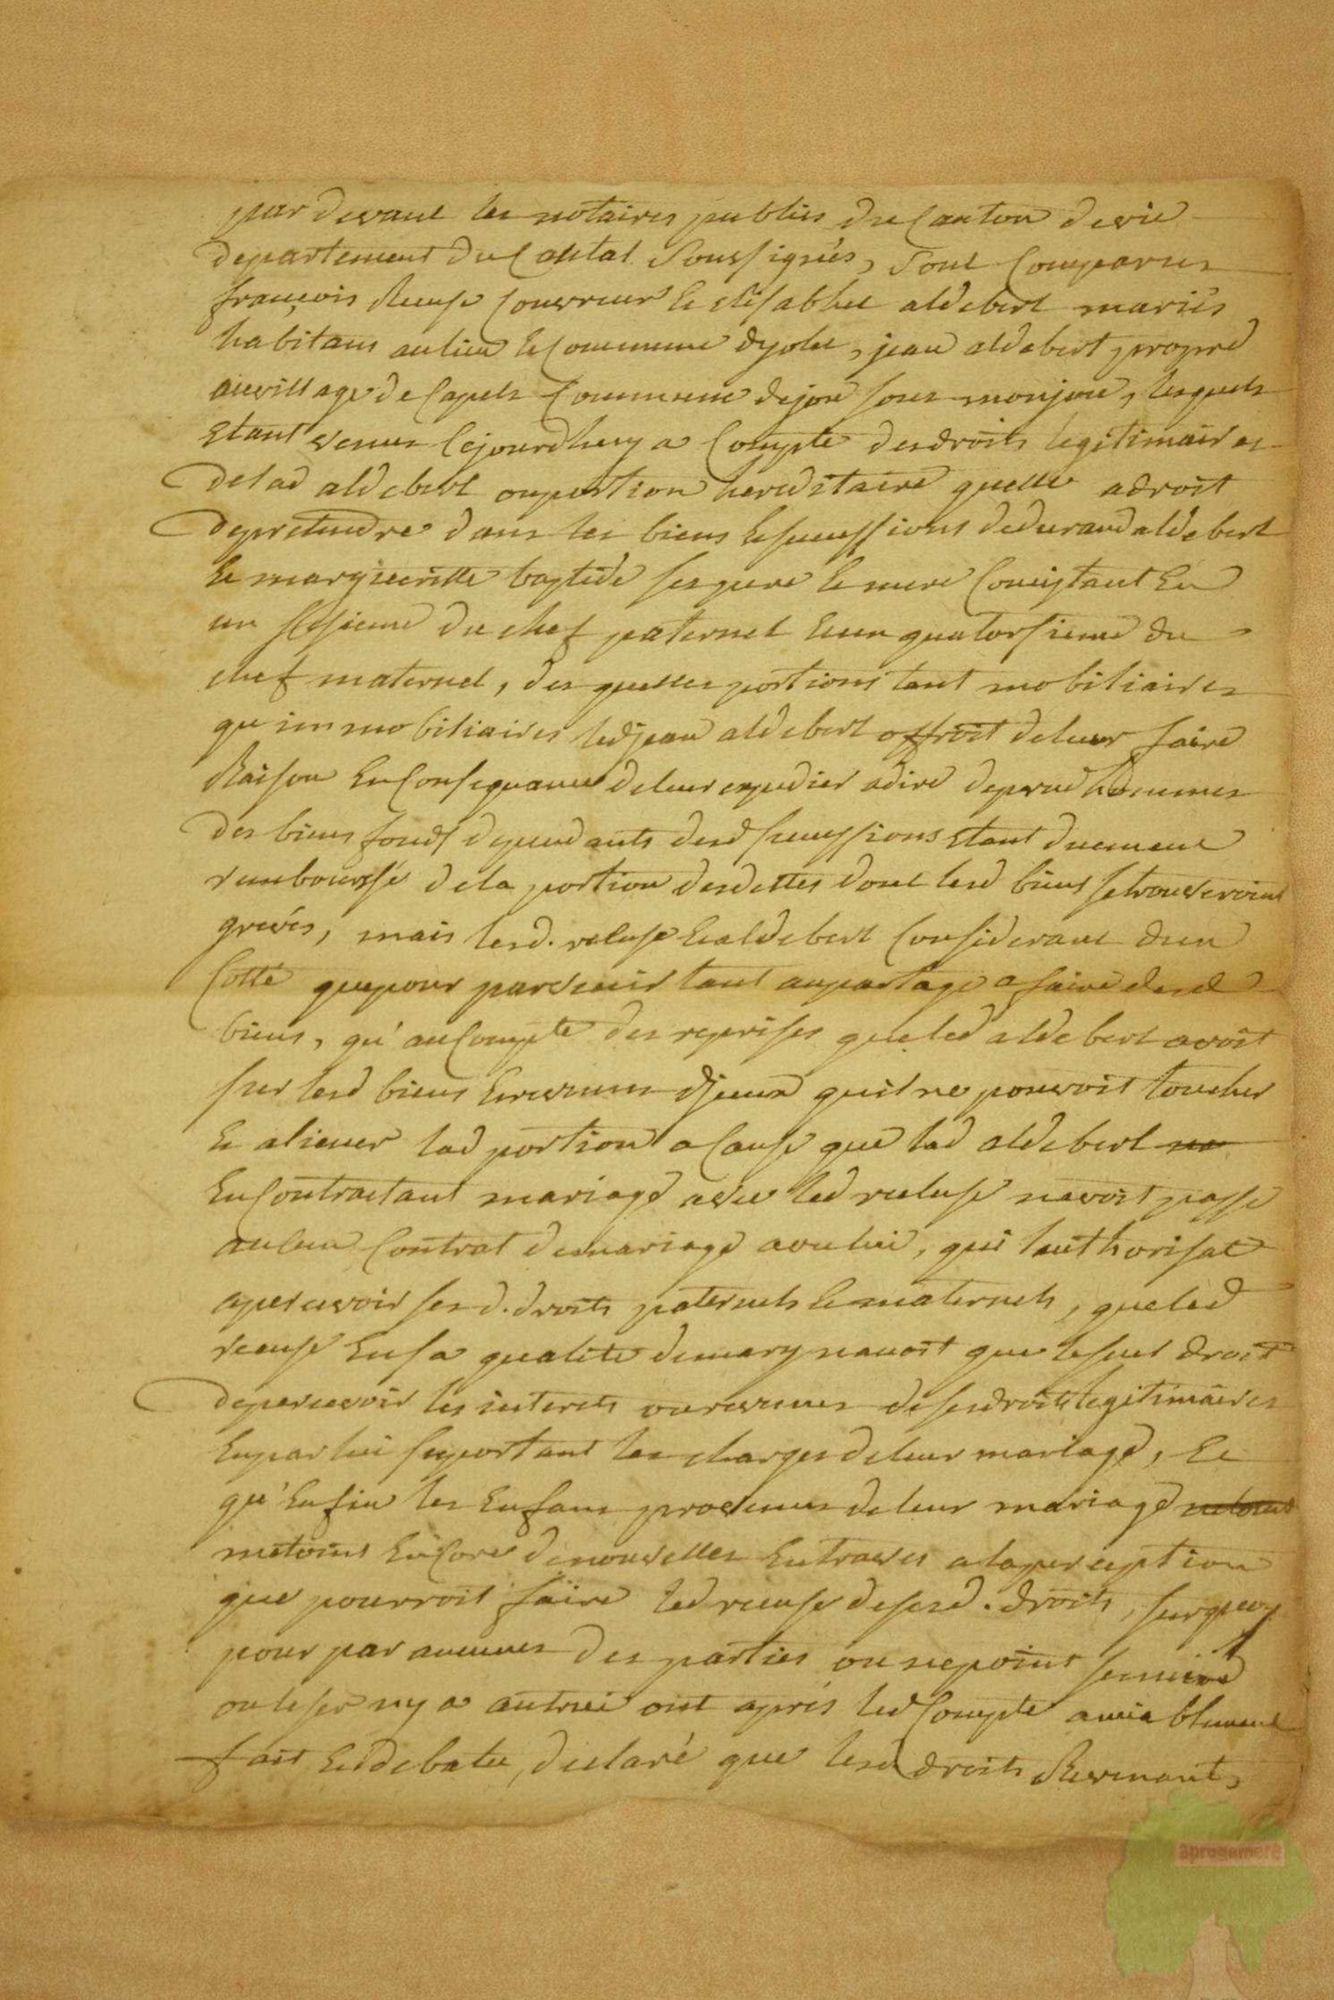 par devant les notaires publics du Canton de vic
departement du Cantal Soussignés, Sont Comparus
françois Reuse Couvreur & Elisabhet aldebert mariés
habitans au lieu & Commune dyolet, jean aldebert propre
au village de Capels Commune de jou sous monjou, lesquels
Etant venus Cejourdhuy a Compte des droits legitimaires
delad aldebert ou portion hereditaire quelle a droit
depretendre dans les biens & successions de durand aldebert
& margueritte baptide ses pere & mere Concistant En
un du chef paternel & un quatorsieme du
chef maternel, des quelles portions tant mobiliaires
qu immobiliaires led jean aldebert offroit deleur faire
Raison En Consequance deleur expedier adire deprud hommes
des biens fonds dependants desd successions Etant duement
remboursé dela portion desdettes dont lesd biens se trouveroint
grevés, mais lesd. reluse & aldebert Considerant dun
Cotté que pour parvenir tant au partage a faire desd
biens, qu' au Compte des reprises que led aldebert avoit
sur lesd biens & revenus diceux quil ne pouvoit toucher
& aliener lad portion a Cause que lad aldebert ne
En Contractant mariage avec led reluse navoit passé
aucun Contrat demariage avec lui, qui lauthorisat
apercevoir ses d. droits paternels & maternels, que led
reuse En sa qualité de mary navoit que le seul droit
depercevoir les interets ou revenus de ses droits legitimaires
En par lui suportant les charges deleur mariage, &
qu' Enfin les Enfans provenus deleur mariage
metoint Encore denouvelles Entraves a la perception
que pourroit faire led reuse de sesd. droits, surquoy
pour par aucunes des parties ou ne point se nuire
ou leser ny a autrui ont aprés led Compte amiablement
fait & debatu, declaré que lesd droits Revenant,
aprogemere